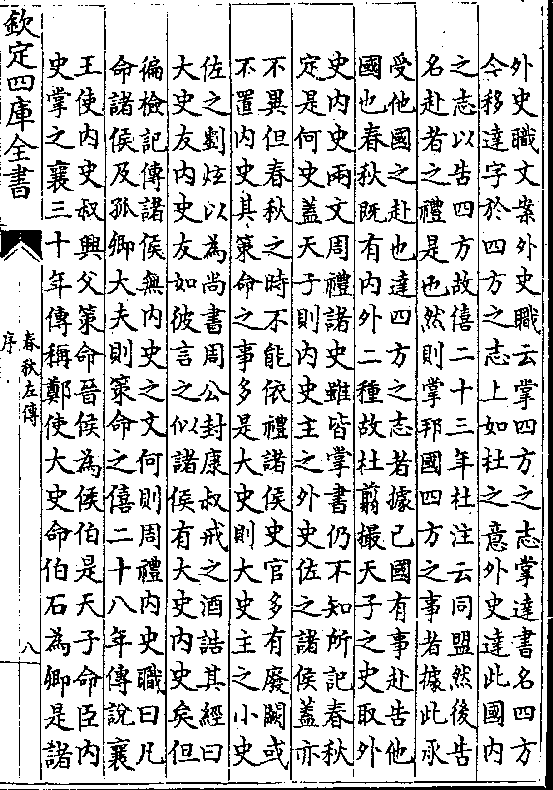 外史職文案外史職云掌四方之志掌達書名四方
令移達字於四方之志上如杜之意外史達此國内
之志以告四方故僖二十三年杜注云同盟然後告
名赴者之禮是也然則掌邦國四方之事者據此承
受他國之赴也達四方之志者據已國有事赴告他
國也春秋既有内外二種故杜翦撮天子之史取外
史内史兩文周禮諸史雖皆掌書仍不知所記春秋
定是何史蓋天子則内史主之外史佐之諸侯蓋亦
不異但春秋之時不能依禮諸侯史官多有廢闕或
不置内史其策命之事多是大史則大史主之小史
佐之劉炫以為尚書周公封康叔戒之酒誥其經曰
大史友内史友如彼言之似諸侯有大史内史矣但
徧檢記傳諸侯無内史之文何則周禮内史職曰凡
命諸侯及孤卿大夫則策命之僖二十八年傳說襄
王使内史叔興父策命晉侯為侯伯是天子命臣内
史掌之襄三十年傳稱鄭使大史命伯石為卿是諸
欽定四庫全書
春秋左傳
序
八